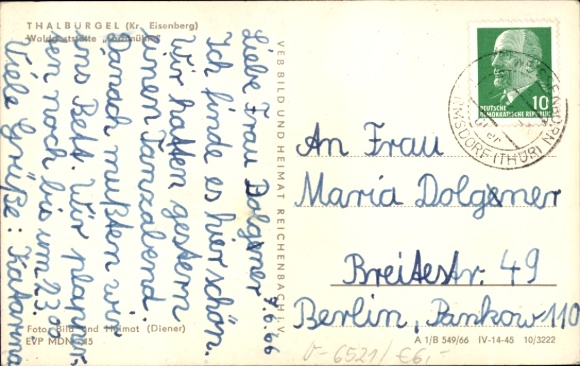 THALBÜRGEL (Kr. Eisenberg)
Waldgaststätte
Liebe Frau Dolgener
7.6.66
Ich finde es hier schön.
Wir hatten gestern
einen Tanzabend.
Danach mußten wir
ins Bett. Wir planen
den noch bis um 23.00
Viele Grüße: Katarina
Foto: Bild und Heimat (Diener)
EVP MDN
VEB BILD UND HEIMAT REICHENBACH I. V.
10
DEUTSCHE
DEMOKRATISCHE REPUBLIK
(THÜR)
An Frau
Maria Dolgener
Breitestr. 49
Berlin, Pankow 110
A 1/B 549/66 IV-14-45 10/3222
v-6521/€6,-